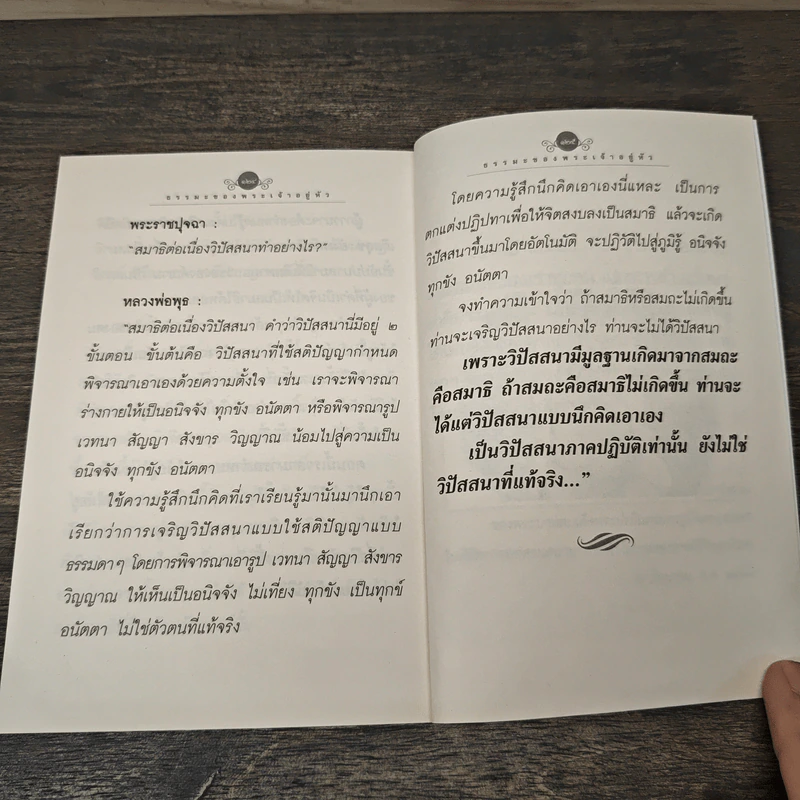 ๑๒๔
ธรรมะของพระเจ้าอยู่หัว
พระราชปุจฉา :
“สมาธิต่อเนื่องวิปัสสนาทำอย่างไร?”
หลวงพ่อพุธ :
“สมาธิต่อเนื่องวิปัสสนา คำว่าวิปัสสนานี่มีอยู่ ๒
ขั้นตอน ขั้นต้นคือ วิปัสสนาที่ใช้สติปัญญากำหนด
พิจารณาเอาเองด้วยความตั้งใจ เช่น เราจะพิจารณา
ร่างกายให้เป็นอนิจจัง ทุกขัง อนัตตา หรือพิจารณารูป
เวทนา สัญญา สังขาร วิญญาณ น้อมไปสู่ความเป็น
อนิจจัง ทุกขัง อนัตตา
ใช้ความรู้สึกนึกคิดที่เราเรียนรู้มานั้นมานึกเอา
เรียกว่าการเจริญวิปัสสนาแบบใช้สติปัญญาแบบ
ธรรมดาๆ โดยการพิจารณาเอารูป เวทนา สัญญา สังขาร
วิญญาณ ให้เห็นเป็นอนิจจัง ไม่เที่ยง ทุกขัง เป็นทุกข์
อนัตตา ไม่ใช่ตัวตนที่แท้จริง
๑๒๕
ธรรมะของพระเจ้าอยู่หัว
โดยความรู้สึกนึกคิดเอาเองนี่แหละ เป็นการ
ตกแต่งปฏิปทาเพื่อให้จิตสงบลงเป็นสมาธิ แล้วจะเกิด
วิปัสสนาขึ้นมาโดยอัตโนมัติ จะปฏิวัติไปสู่ภูมิรู้ อนิจจัง
ทุกขัง อนัตตา
จงทำความเข้าใจว่า ถ้าสมาธิหรือสมถะไม่เกิดขึ้น
ท่านจะเจริญวิปัสสนาอย่างไร ท่านจะไม่ได้วิปัสสนา
เพราะวิปัสสนามีมูลฐานเกิดมาจากสมถะ
คือสมาธิ ถ้าสมถะคือสมาธิไม่เกิดขึ้น ท่านจะ
ได้แต่วิปัสสนาแบบนึกคิดเอาเอง
เป็นวิปัสสนาภาคปฏิบัติเท่านั้น ยังไม่ใช่
วิปัสสนาที่แท้จริง...”